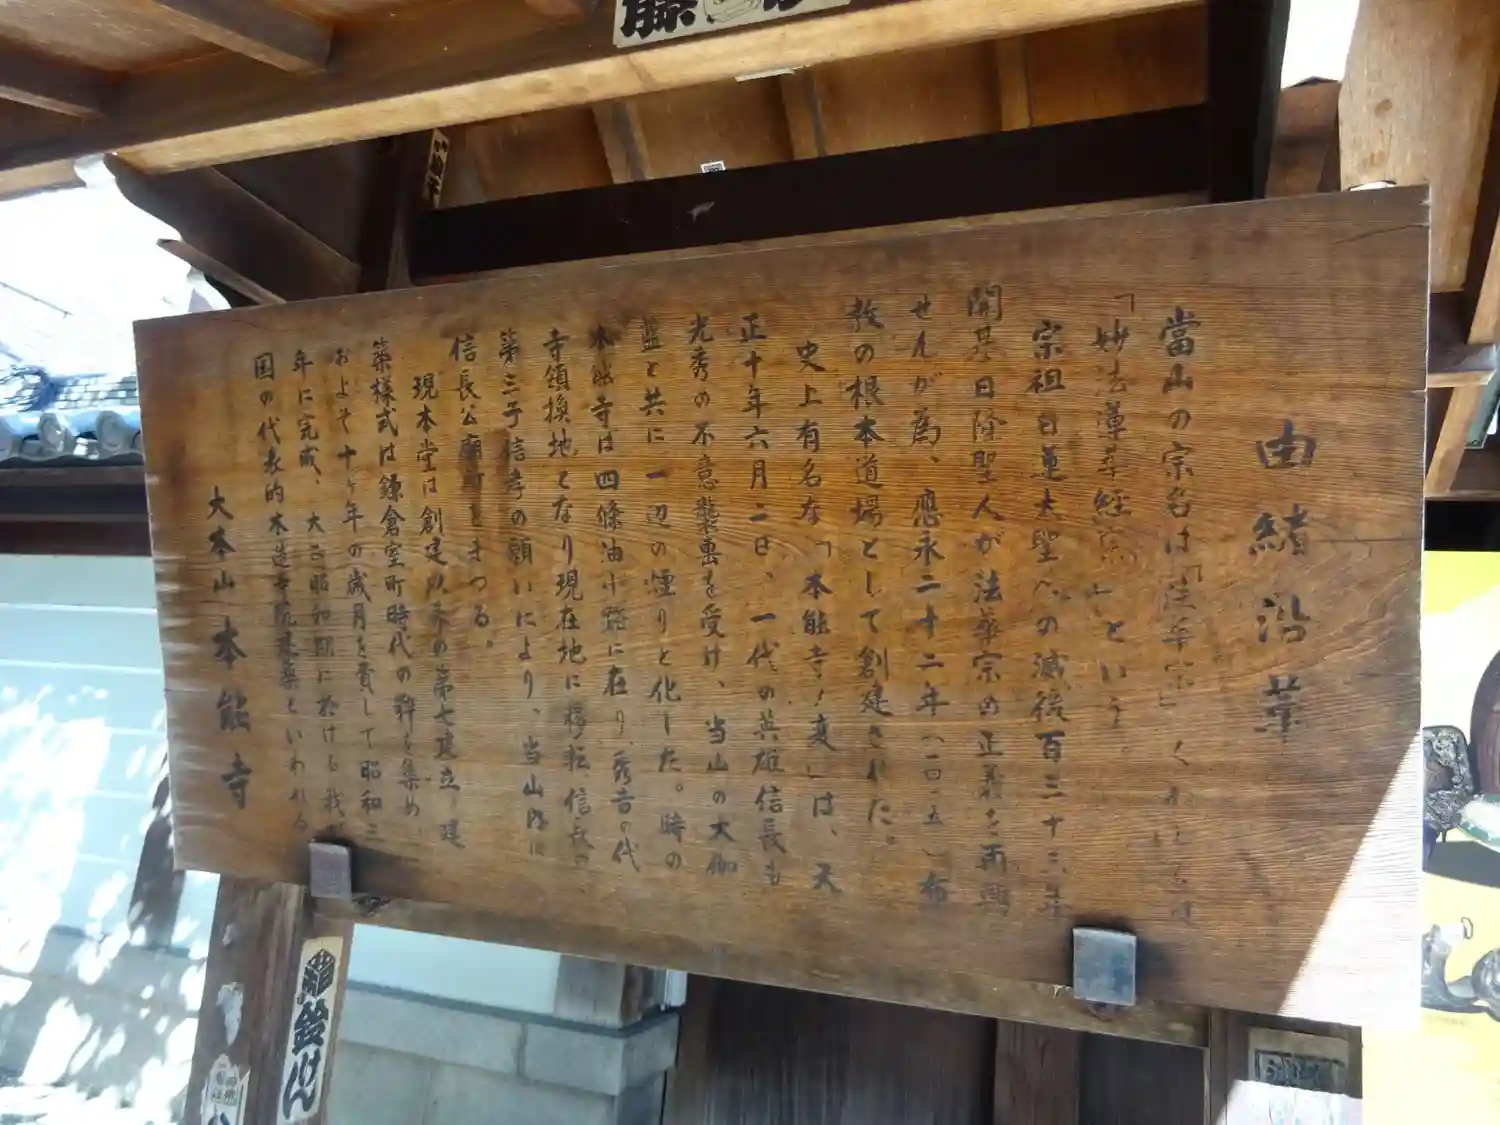 由緒沿革
當山の宗名は「法華宗」
「妙法蓮華経 」という。
宗祖日蓮大聖人の滅後百三十三年
開基日隆聖人が法華宗の正義を再興
せんが為、應永二十二年(一四一五)布
教の根本道場として創建された。
史上有名な「本能寺ノ変」は、天
正十年六月二日、一代の英雄信長も
光秀の不意襲撃を受け、当山の大伽
藍と共に一辺の煙りと化した。時の
本能寺は四條油小路に在り、秀吉の代
寺領換地となり現在地に移転、信長の
第三子信孝の願いにより、当山内に
信長公廟所をまつる。
現本堂は創建以来の第七建立、建
築様式は鎌倉室町時代の粋を集め、
およそ十ヶ年の歳月を費して昭和三
年に完成、大正昭和期に於ける我
国の代表的木造寺院建築といわれる
大本山 本能寺